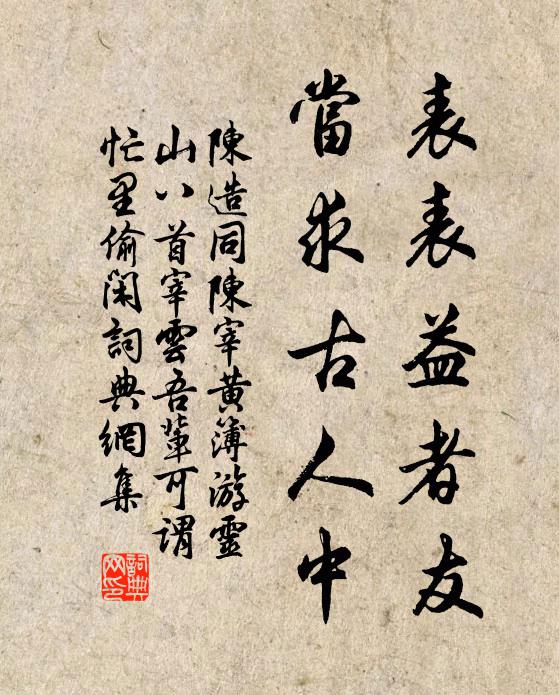 表表益者友
當求古人中
陳造同陳宰黃簿游靈
山八首宰雲吾輩可謂
忙里偷閑詞典網集
詞典
网印